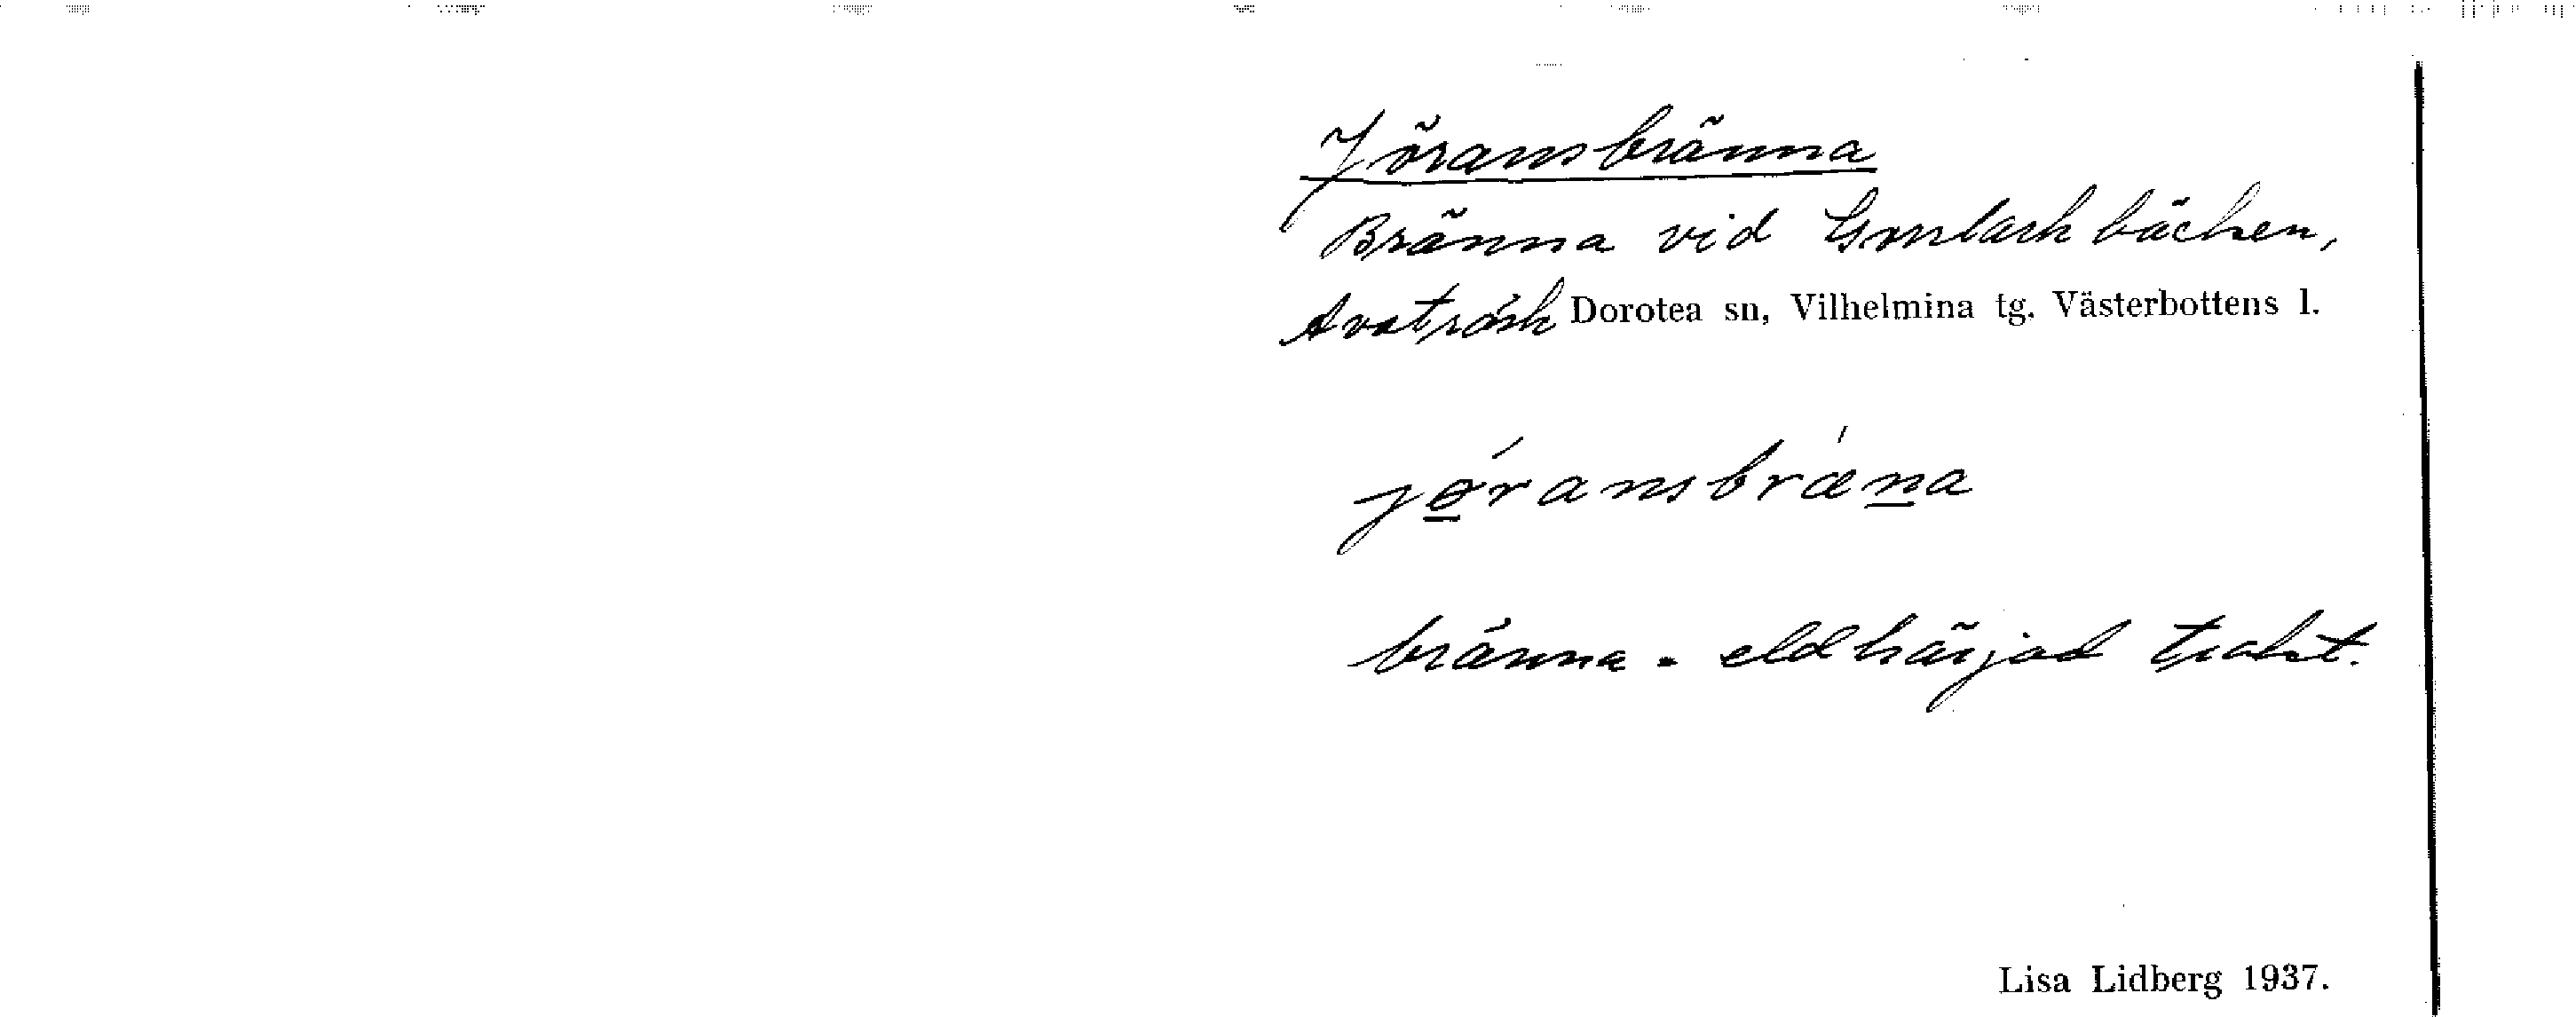 Jöransbränna
Bränna vid bäcken,
Avaträsk Dorotea sn, Vilhelmina tg. Västerbottens l.
jøransbræna
bränna - eldhärjad trakt.
Lisa Lidberg 1937.